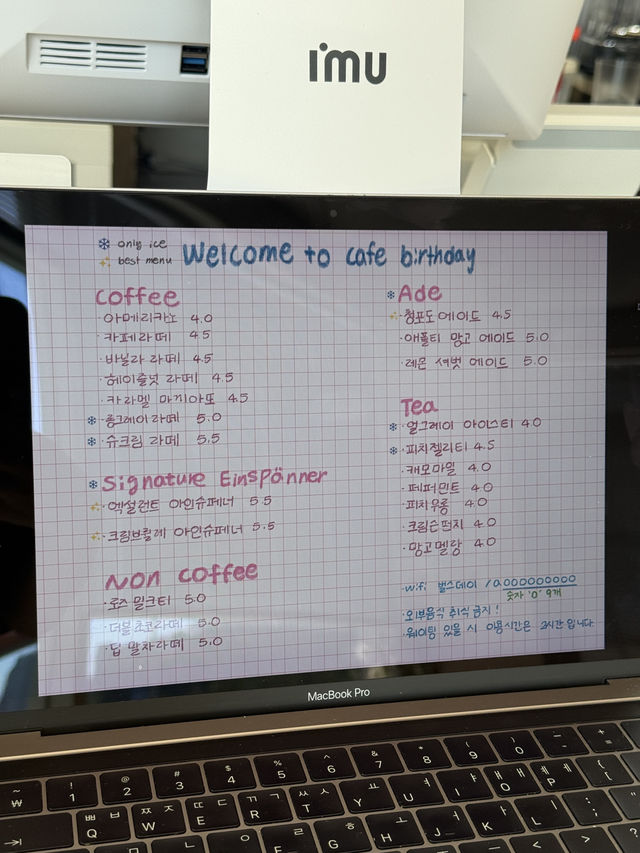 i'mu
only ice
best menu
Welcome to cafe birthday
coffee
· 아메리카노 4.0
· 카페라떼 4.5
· 바닐라 라떼 4.5
· 헤이즐넛 라떼 4.5
· 카라멜 마끼아또 4.5
· 롱그레이라떼 5.0
· 슈크림 라떼 5.5
Signature Einspänner
· 엑설런트 아인슈페너 5.5
· 크림브륄레 아인슈페너 5.5
Non coffee
· 로즈 밀크티 5.0
· 더블초코라떼 5.0
· 딥 말차라떼 5.0
Ade
· 청포도 에이드 4.5
· 애플티 망고 에이드 5.0
· 레몬 셔벗 에이드 5.0
Tea
· 얼그레이 아이스티 4.0
· 피치젤리티 4.5
· 캐모마일 4.0
· 페퍼민트 4.0
· 피치우롱 4.0
· 크림슨펀치 4.0
· 망고멜랑 4.0
· wifi 벌스데이 / a000000000
숫자 '0' 9개
· 외부음식 취식 금지!
· 웨이팅 있을 시 이용시간은 2시간 입니다
MacBook Pro
~ ₩ ! 1 @ 2 # 3 $ 4 % 5 ^ 6 & 7 * 8 ( 9 ) 0 _ - + =
ㅃ ㅂ Q ㅉ ㅈ W ㄸ ㄷ E ㄲ ㄱ R ㅆ ㅅ T ㅛ Y ㅕ U ㅑ I ㅒ ㅐ O ㅖ ㅔ P { [
ㄹ F ㅎ G ㅗ H ㅓ J ㅏ K ㅣ L : ;